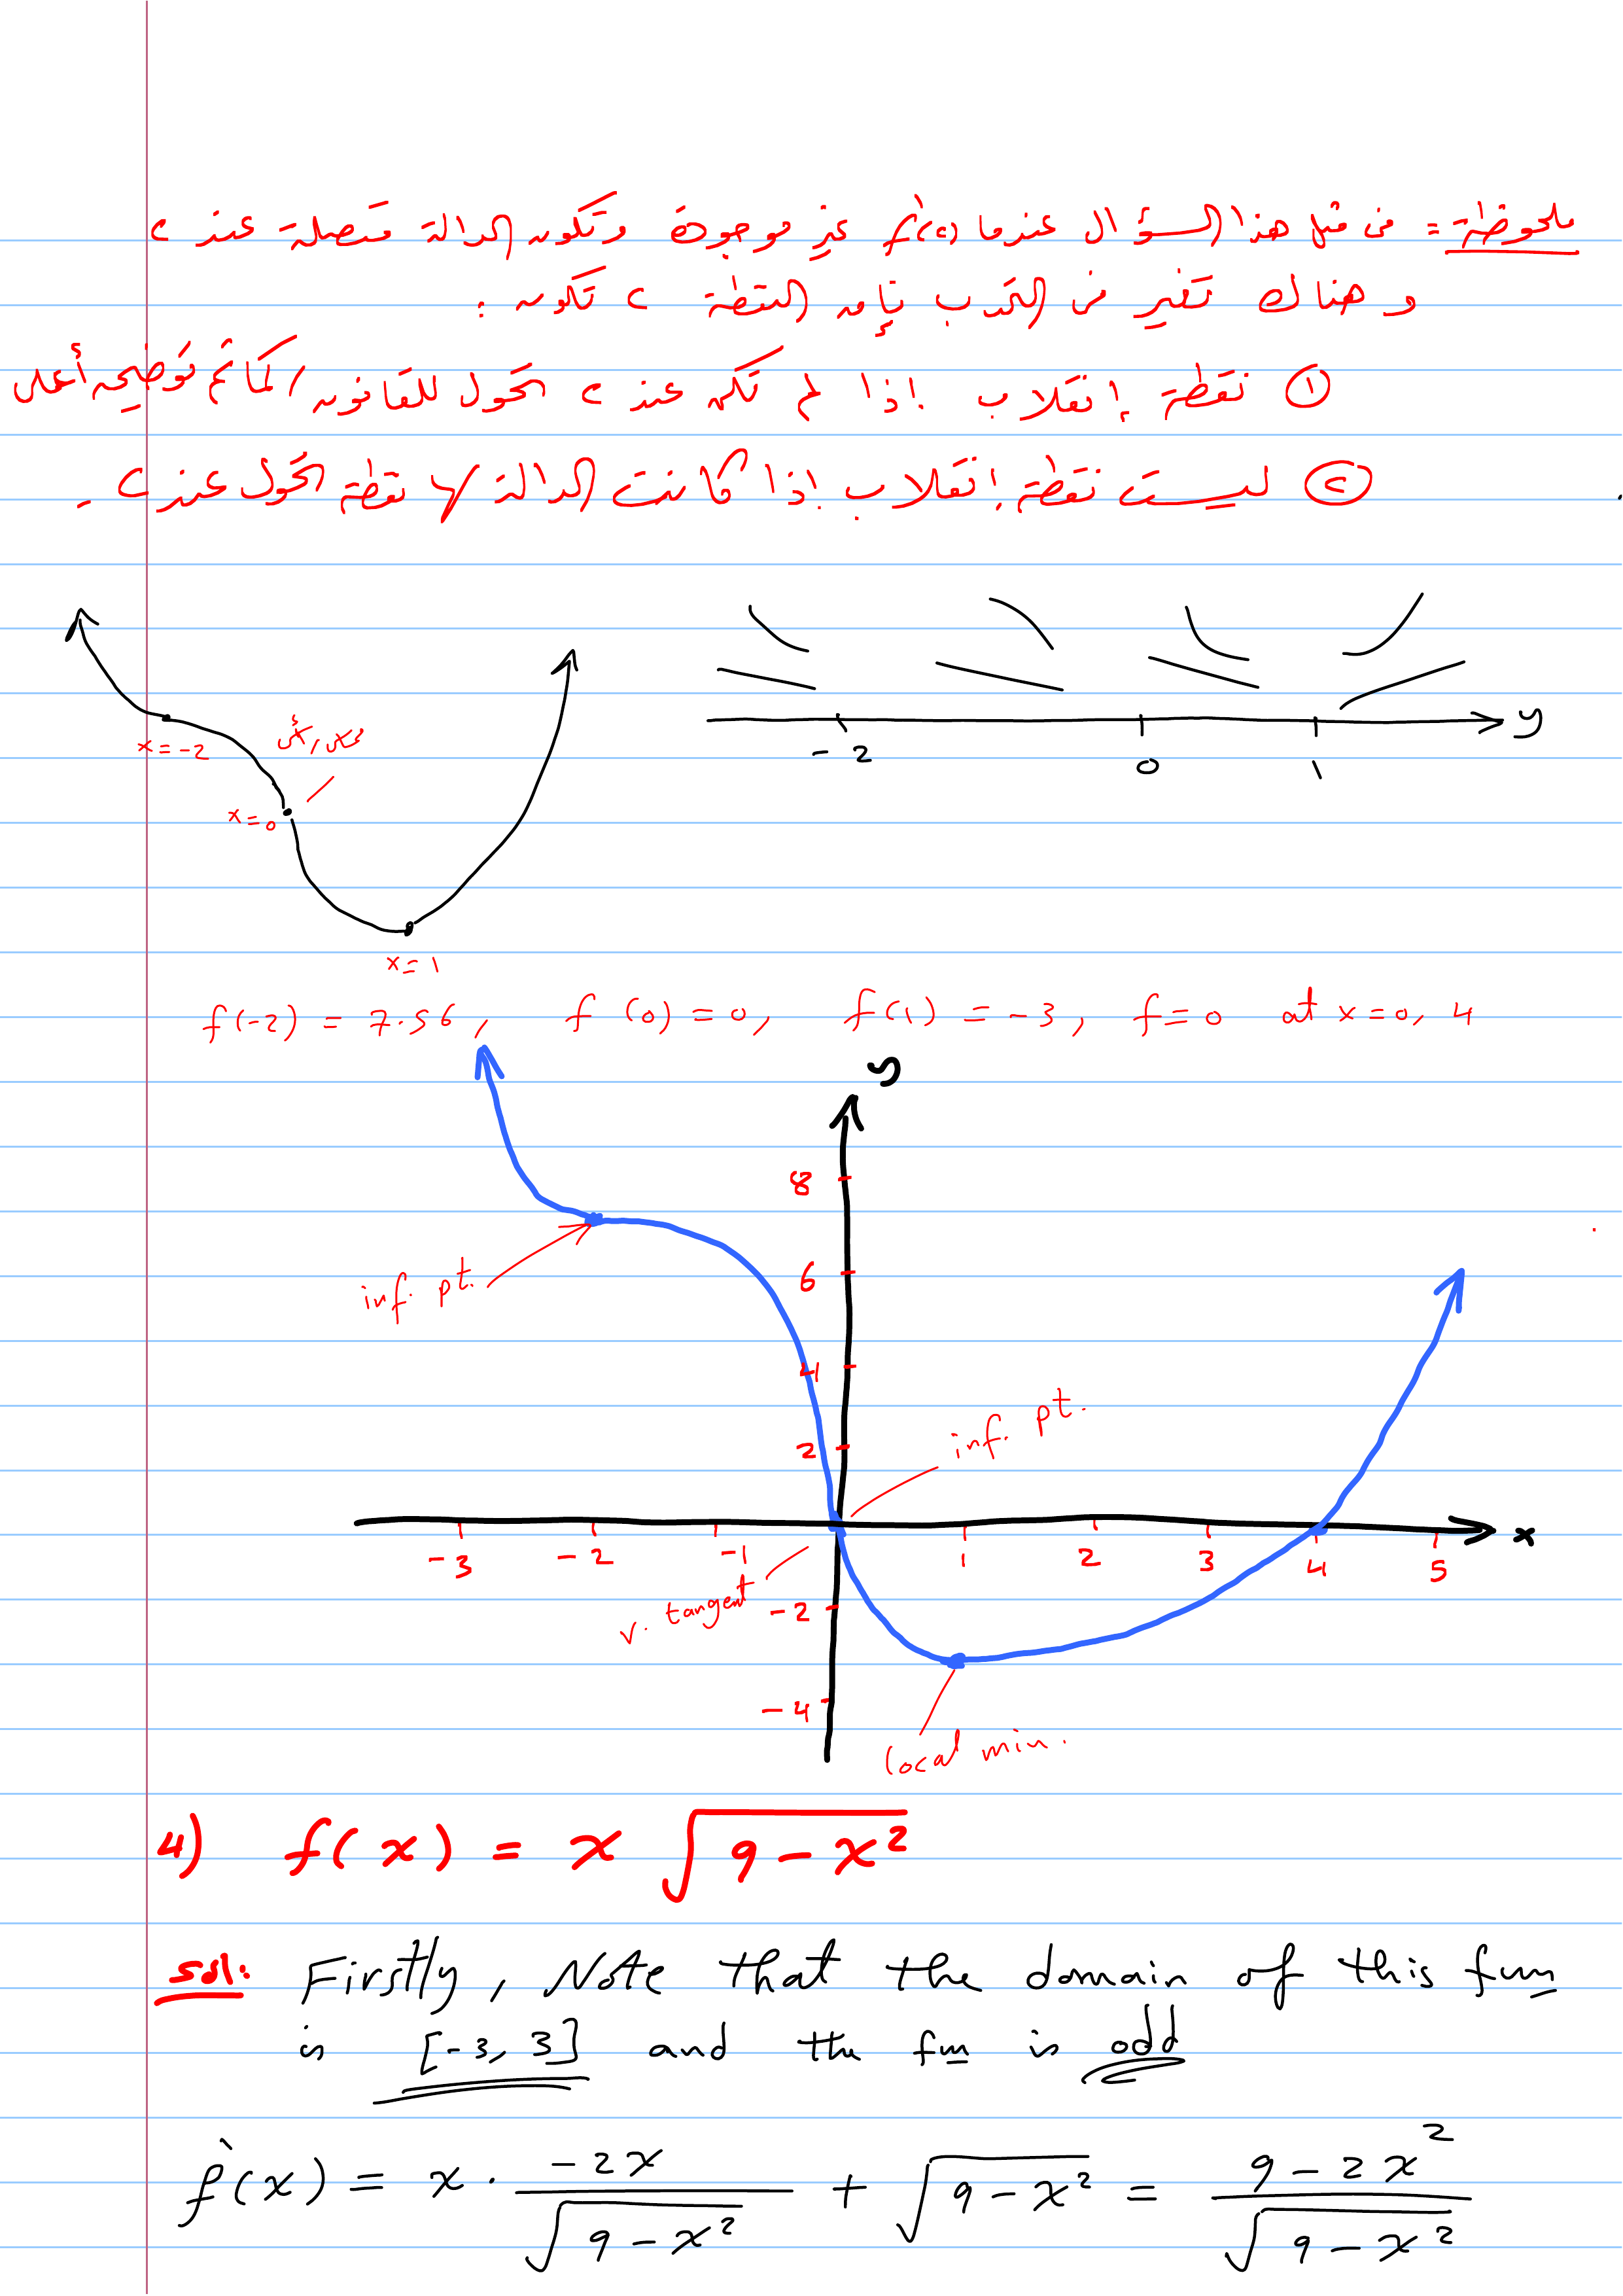 ملحوظة = في مثل هذا السؤال عندما f'(c) غير موجودة وتكون الدالة متصلة عند c
وهناك تغير في التحدب فإن النقطة c تكون :
① نقطة إنقلاب إذا لم تكن عند c تحول للقانون / كما تم توضيحه أعلى
② ليست نقطة إنقلاب إذا كانت الدالة لها نقطة تحول عند c -
-2 0 1 y
x = -2
x = 0
x = 1
f(-2) = 7.56, f(0) = 0, f(1) = -3, f = 0 at x = 0, 4
y
8
6
inf. pt.
4
inf. pt.
2
-3 -2 -1 1 2 3 4 5 x
v. tangent
-2
-4
local min.
4) f(x) = x √(9 - x²)
sol: Firstly, Note that the domain of this fun
is [-3, 3] and the fun is odd
f'(x) = x · (-2x)/√(9 - x²) + √(9 - x²) = (9 - 2x²)/√(9 - x²)